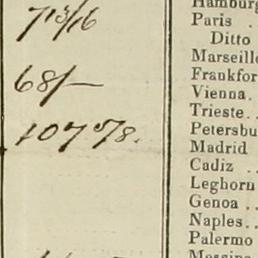 Hamburg
7 13/16
Paris
Ditto
Marseille
68/-
Frankfor
Vienna
Trieste
107 7/8.
Petersbu
Madrid
Cadiz
Leghorn
Genoa
Naples
Palermo
Messina